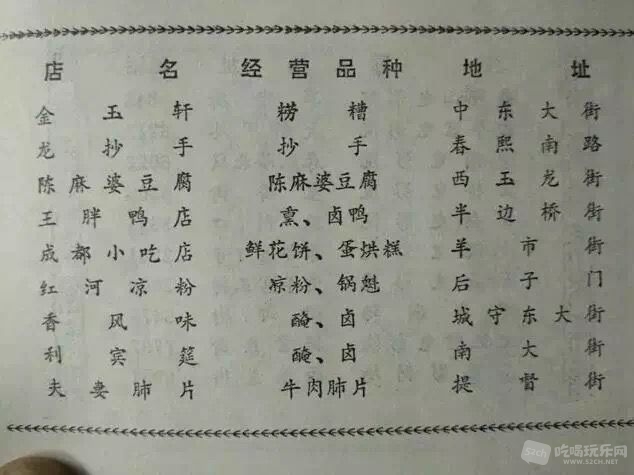 店名 经营品种 地址
金玉轩 捞糟 中东大街
龙抄手 抄手 春熙南路
陈麻婆豆腐 陈麻婆豆腐 西玉龙街
王胖鸭店 熏、卤鸭 半边桥街
成都小吃店 鲜花饼、蛋烘糕 羊市街
红河凉粉 凉粉、锅魁 后子门
香风味 腌、卤 城守东大街
利宾筵 腌、卤 南大街
夫妻肺片 牛肉肺片 提督街
吃喝玩乐网
WWW.52CH.NET